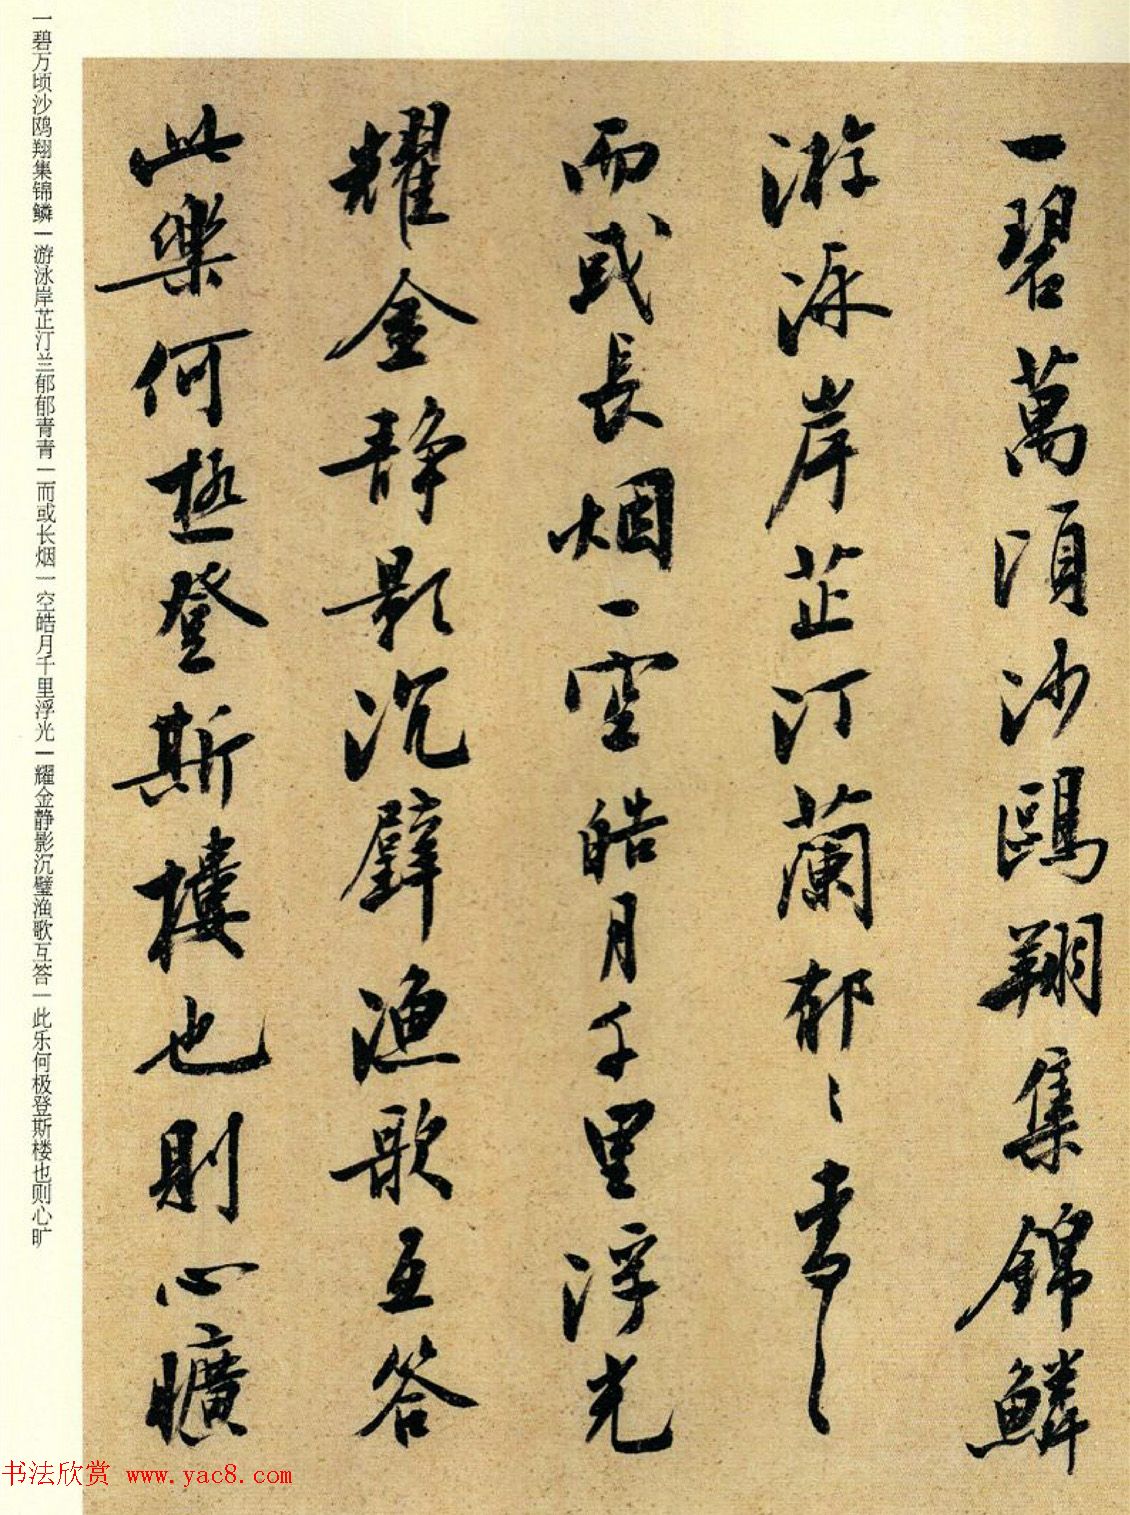 一碧萬頃沙鷗翔集錦鱗
游泳岸芷汀蘭郁〻青〻
而或長烟一空皓月千里浮光
耀金静影沉璧漁歌互答
此樂何極登斯樓也則心曠
一碧万顷沙鸥翔集锦鳞一游泳岸芷汀兰郁郁青青一而或长烟一空皓月千里浮光一耀金静影沉璧渔歌互答一此乐何极登斯楼也则心旷
书法欣赏 www.yac8.com